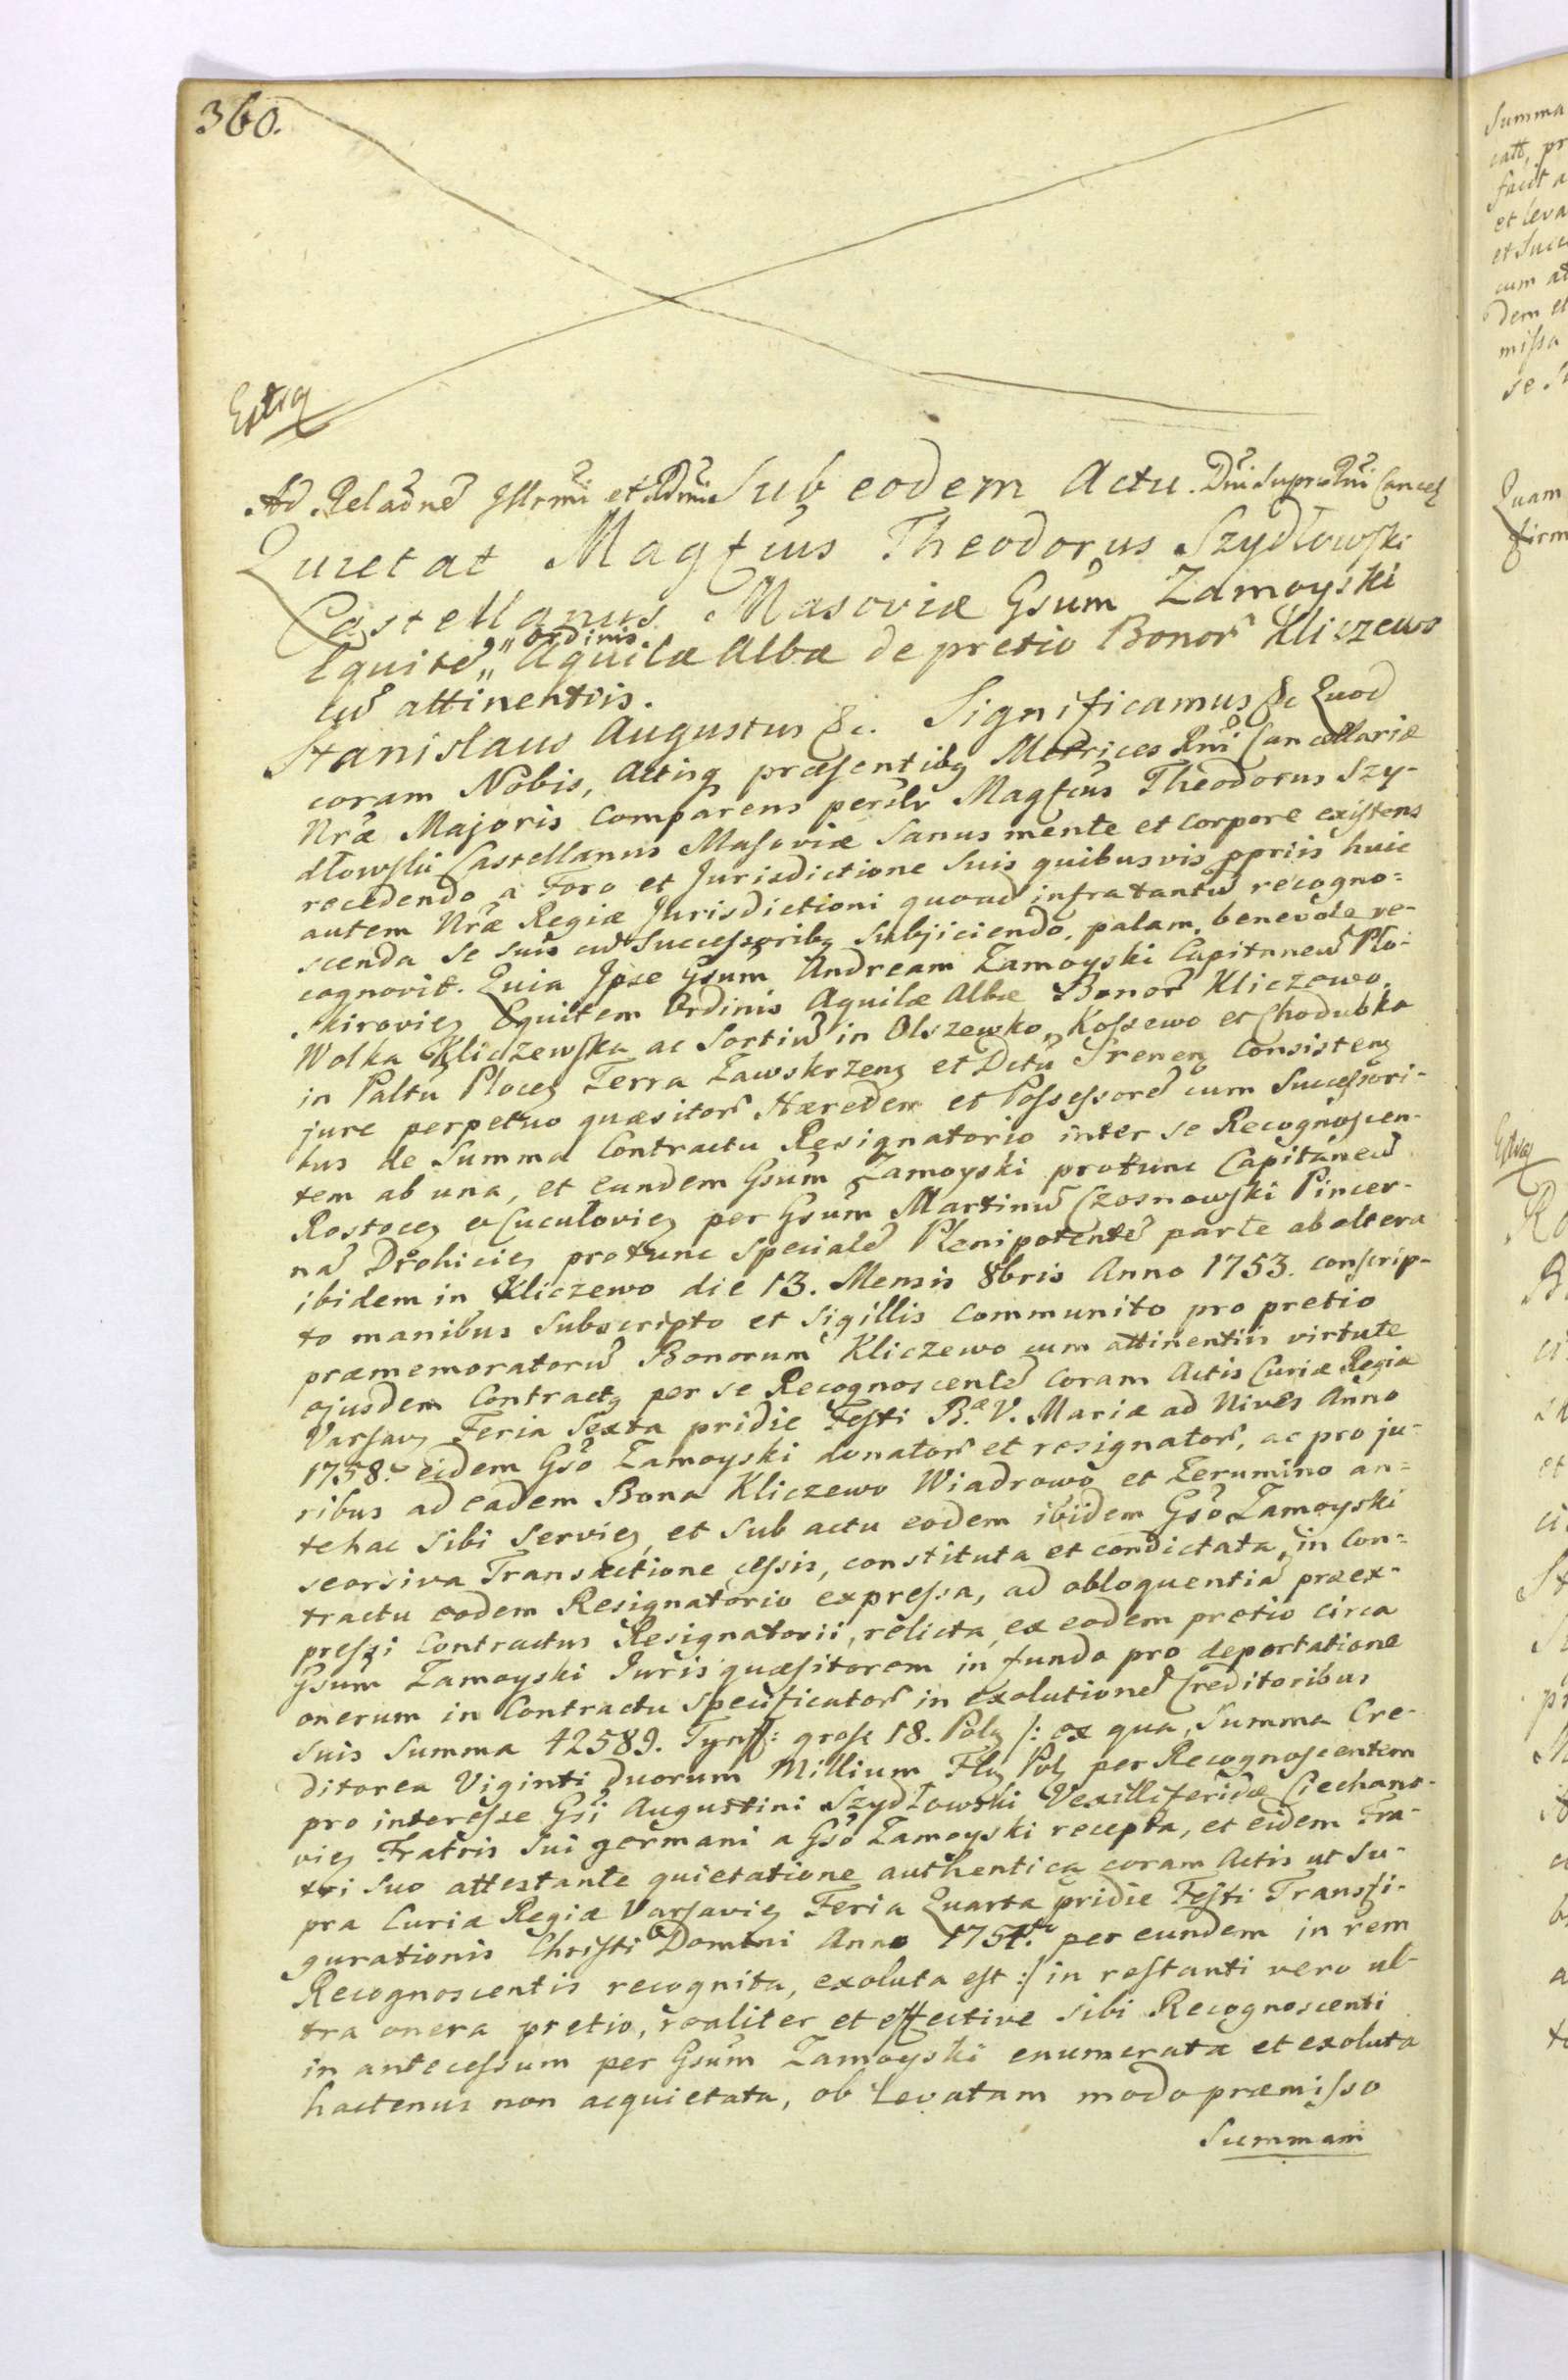 360.
Extra
Ad Relaõne Jllrmi et Rdmi Sub eodem Actu. Dni Supr Rni Cancel
Quietat Magfcus Theodorus Szydłowski
Castellanus Masoviæ Gsum Zamoyski
Equite „ ordinis Aquilæ Albæ de pretio Bonor Kliczewo
cu attinentiis.
Stanislaus Augustus &c. Significamus &c Quod
coram Nobis, Actisq præsentibq Metrices Rni Cancellariæ
Nræ Majoris Comparens persnlr Magfcus Theodorus Szy-
dłowski Castellanus Masoviæ Sanus mente et Corpore existens
recedendo a Foro et Jurisdictione Suis quibusvis ppriis huic
autem Nræ Regiæ Jurisdictioni quoad infratantu recogno=
scenda Se suis cu Successoribq Subjiciendo, palam, benevole re-
cognovit. Quia Jpse Gsum Andream Zamoyski Capitaneu Plo-
skirovien Equitem Ordinis Aquilæ Albæ Bonor Kliczewo,
Wolka Kliczewska ac Sortiu in Olszewko, Kossewo et Chodubka
in Paltu Plocen Terra Zawskrzen et Dctu Srenen Consisten
jure perpetuo quæsitor Hæredem et Possessore cum Successori-
bus de Summa Contractu Resignatorio inter se Recognoscen-
tem ab una, et eundem Gsum Zamoyski protunc Capitaneu
Rostocen et Cuculovien per Gsum Martinu Czosnowski Pincer-
na Drohicien protunc Speciale Plenipotente parte ab altera
ibidem in Kliczewo die 13. Mensis 8bris Anno 1753. conscrip-
to manibus Subscripto et Sigillis Communito pro pretio
præmemoratoru Bonorum Kliczewo cum attinentiis virtute
ejusdem Contractq per se Recognoscente Coram Actis Curiæ Regiæ
Varsav Feria Sexta pridie Festi B.æ V. Mariæ ad Nives Anno
1758. eidem Gso Zamoyski donator et resignator, ac pro ju-
ribus ad eadem Bona Kliczewo Wiadrowo et Zerumino an=
tehac Sibi Servien, et Sub actu eodem ibidem Gso Zamoyski
seorsiva Transactione cessis, constituta et condictata, in Con=
tractu eodem Resignatorio expressa, ad obloquentia præex-
pressi Contractus Resignatorii, relicta, ex eodem pretio circa
Gsum Zamoyski Juris quæsitorem in fundo pro deportatione
onerum in Contractu Specificator in exolutione Creditoribus
Suis Summa 42589. Tynf: gross 18. Pol /: ex qua, Summa Cre-
ditorea Viginti duorum Millium Fl Pol per Recognoscentem
pro interesse Gsi Augustini Szydłowski Vexilliferidæ Ciechano-
vien Fratris Sui germani a Gso Zamoyski recepta, et eidem Fra-
tri Suo attestante quietatione authentica coram Actis ut Su-
pra Curiæ Regiæ Varsavien Feria Quarta pridie Festi Transfi-
gurationis Christi Domini Anno 1754. per eundem in rem
Recognoscentis recognita, exoluta est :/ in restanti vero ul-
tra onera pretio, realiter et effective Sibi Recognoscenti
in antecessum per Gsum Zamoyski enumerata et exoluta
hactenus non acquietata, ob Levatam modo præmisso
Summam